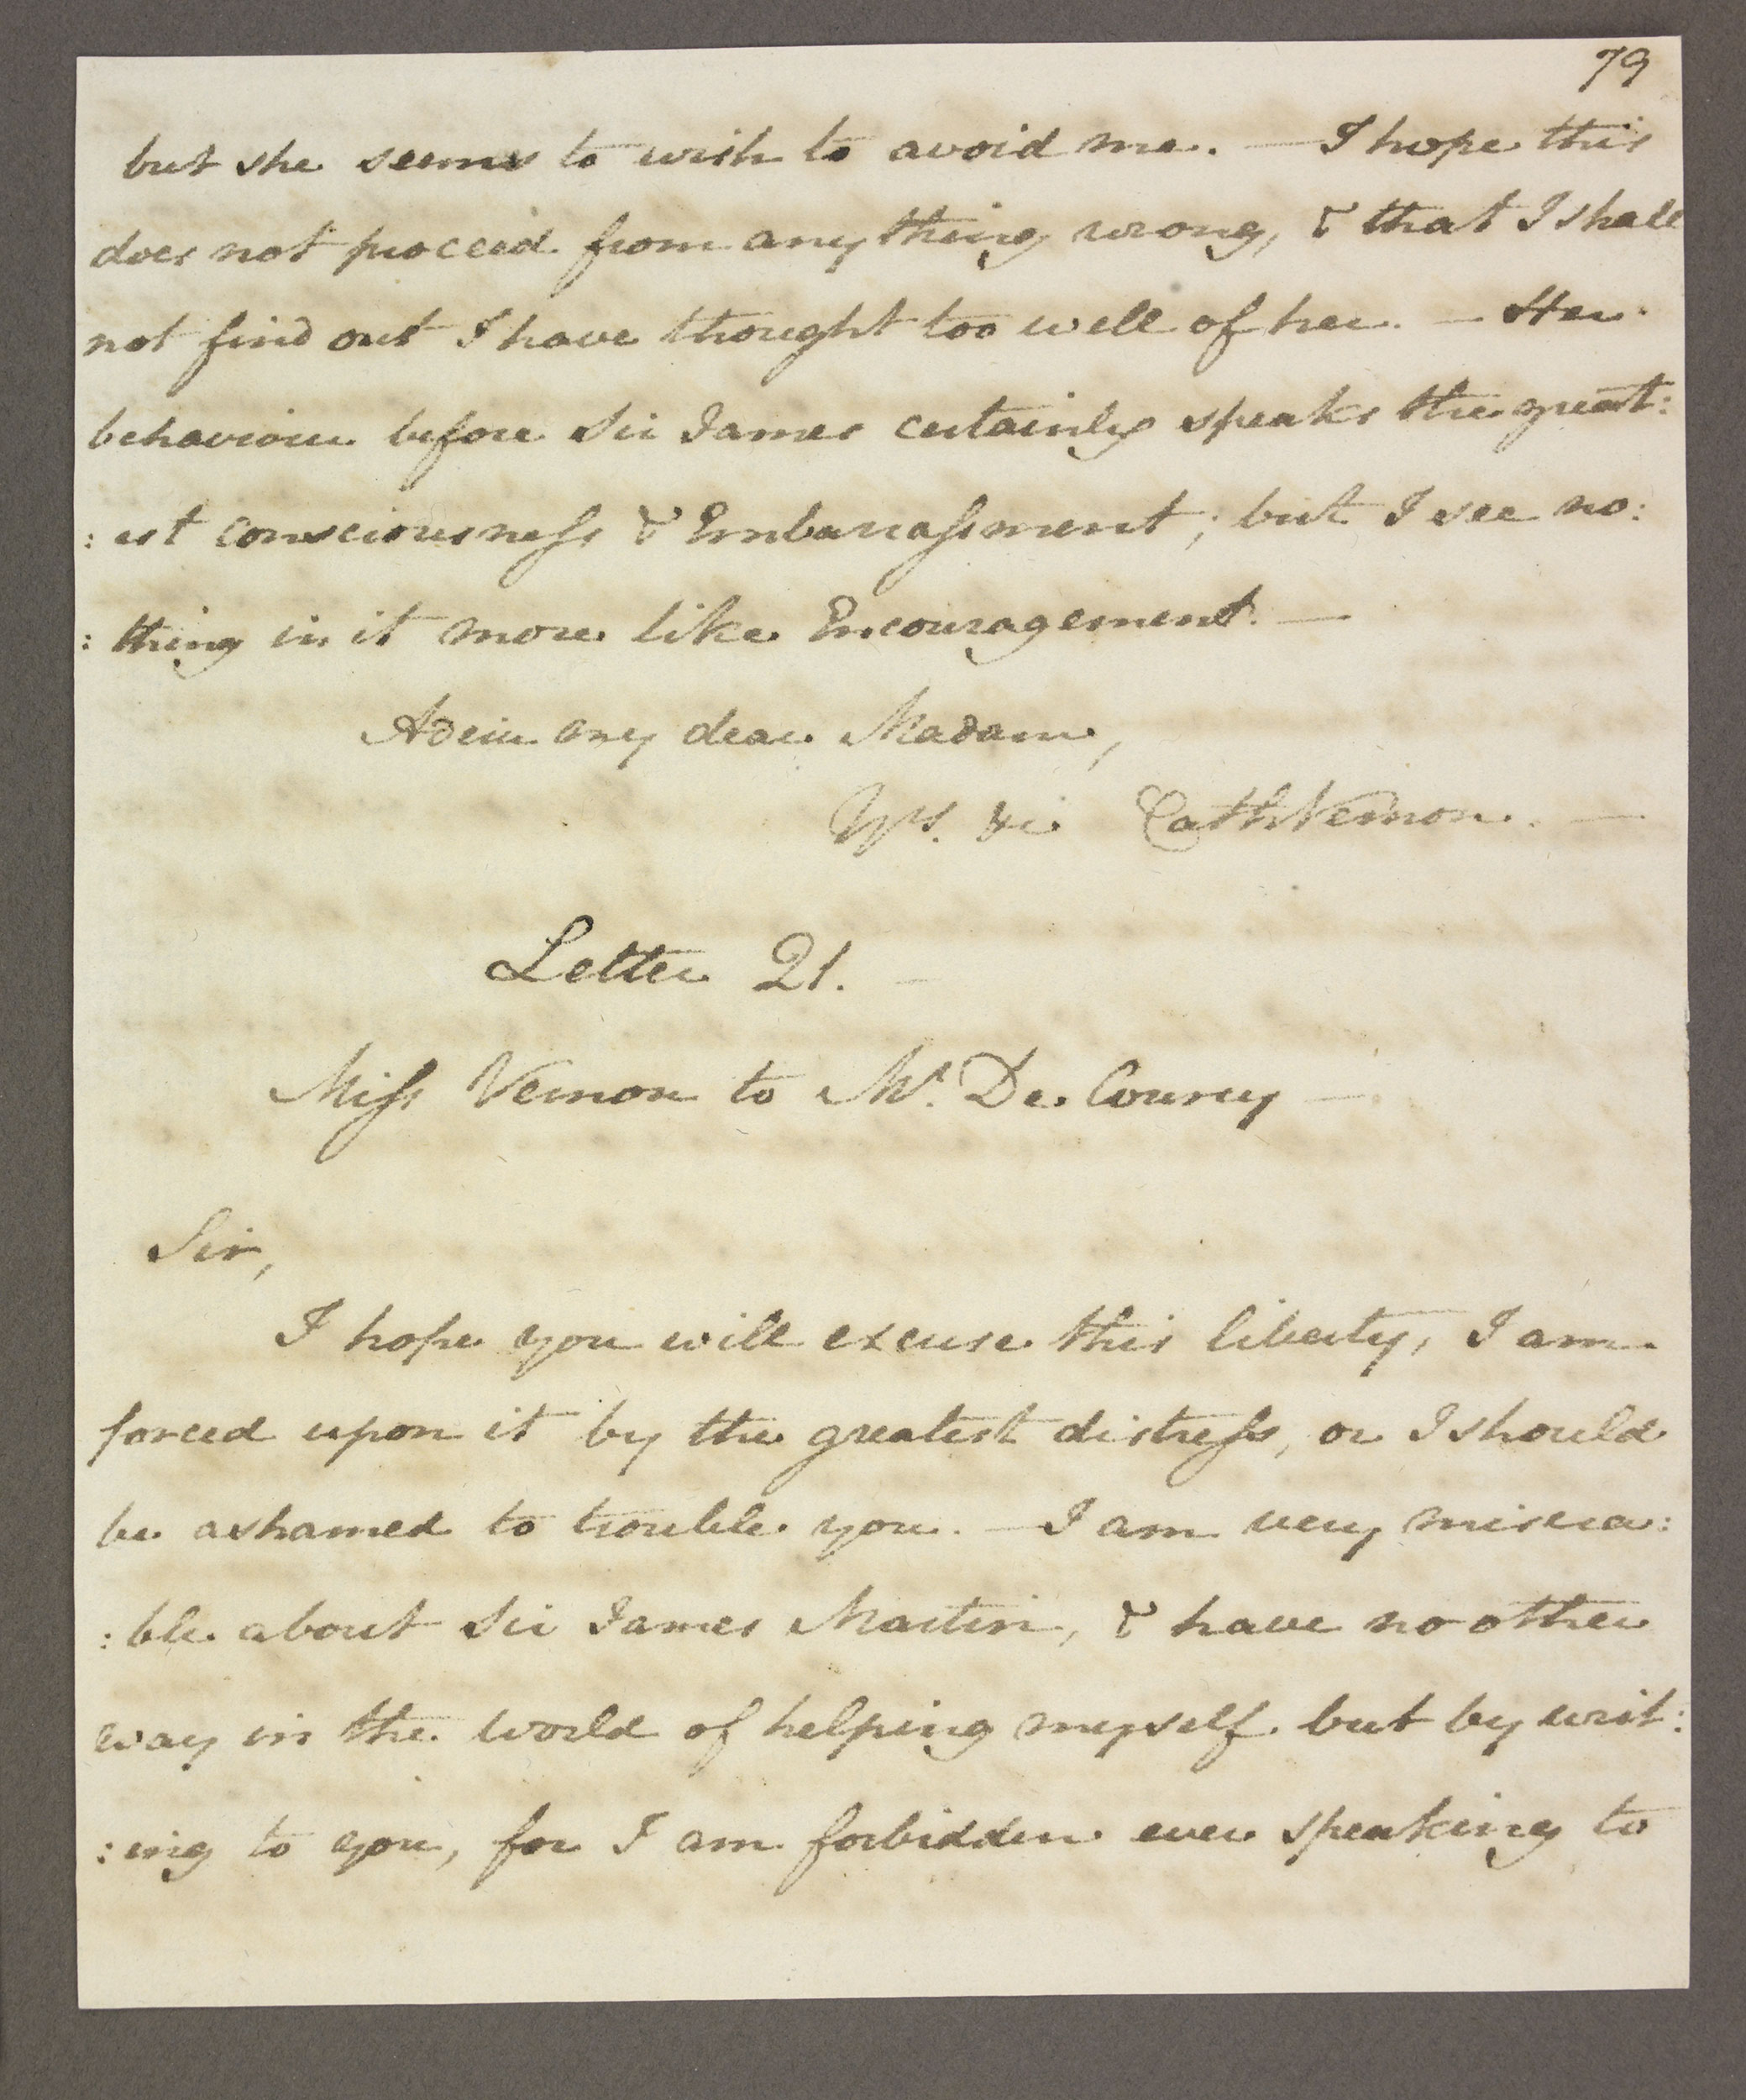 79
but she seems to wish to avoid me. — I hope this
does not proceed from any thing wrong, & that I shall
not find out I have thought too well of her. — Her
behaviour before Sir James certainly speaks the great:
:est consciousness & Embarrassment; but I see no:
:thing in it more like Encouragement. —
Adeiu my dear Madam,
Yrs. &c Cath Vernon. —
Letter 21. —
Miss Vernon to Mr. De Courcy —
Sir,
I hope you will excuse this liberty, I am
forced upon it by the greatest distress, or I should
be ashamed to trouble you. — I am very misera:
:ble about Sir James Martin, & have no other
way in the world of helping myself but by writ:
:ing to you, for I am forbidden even speaking to